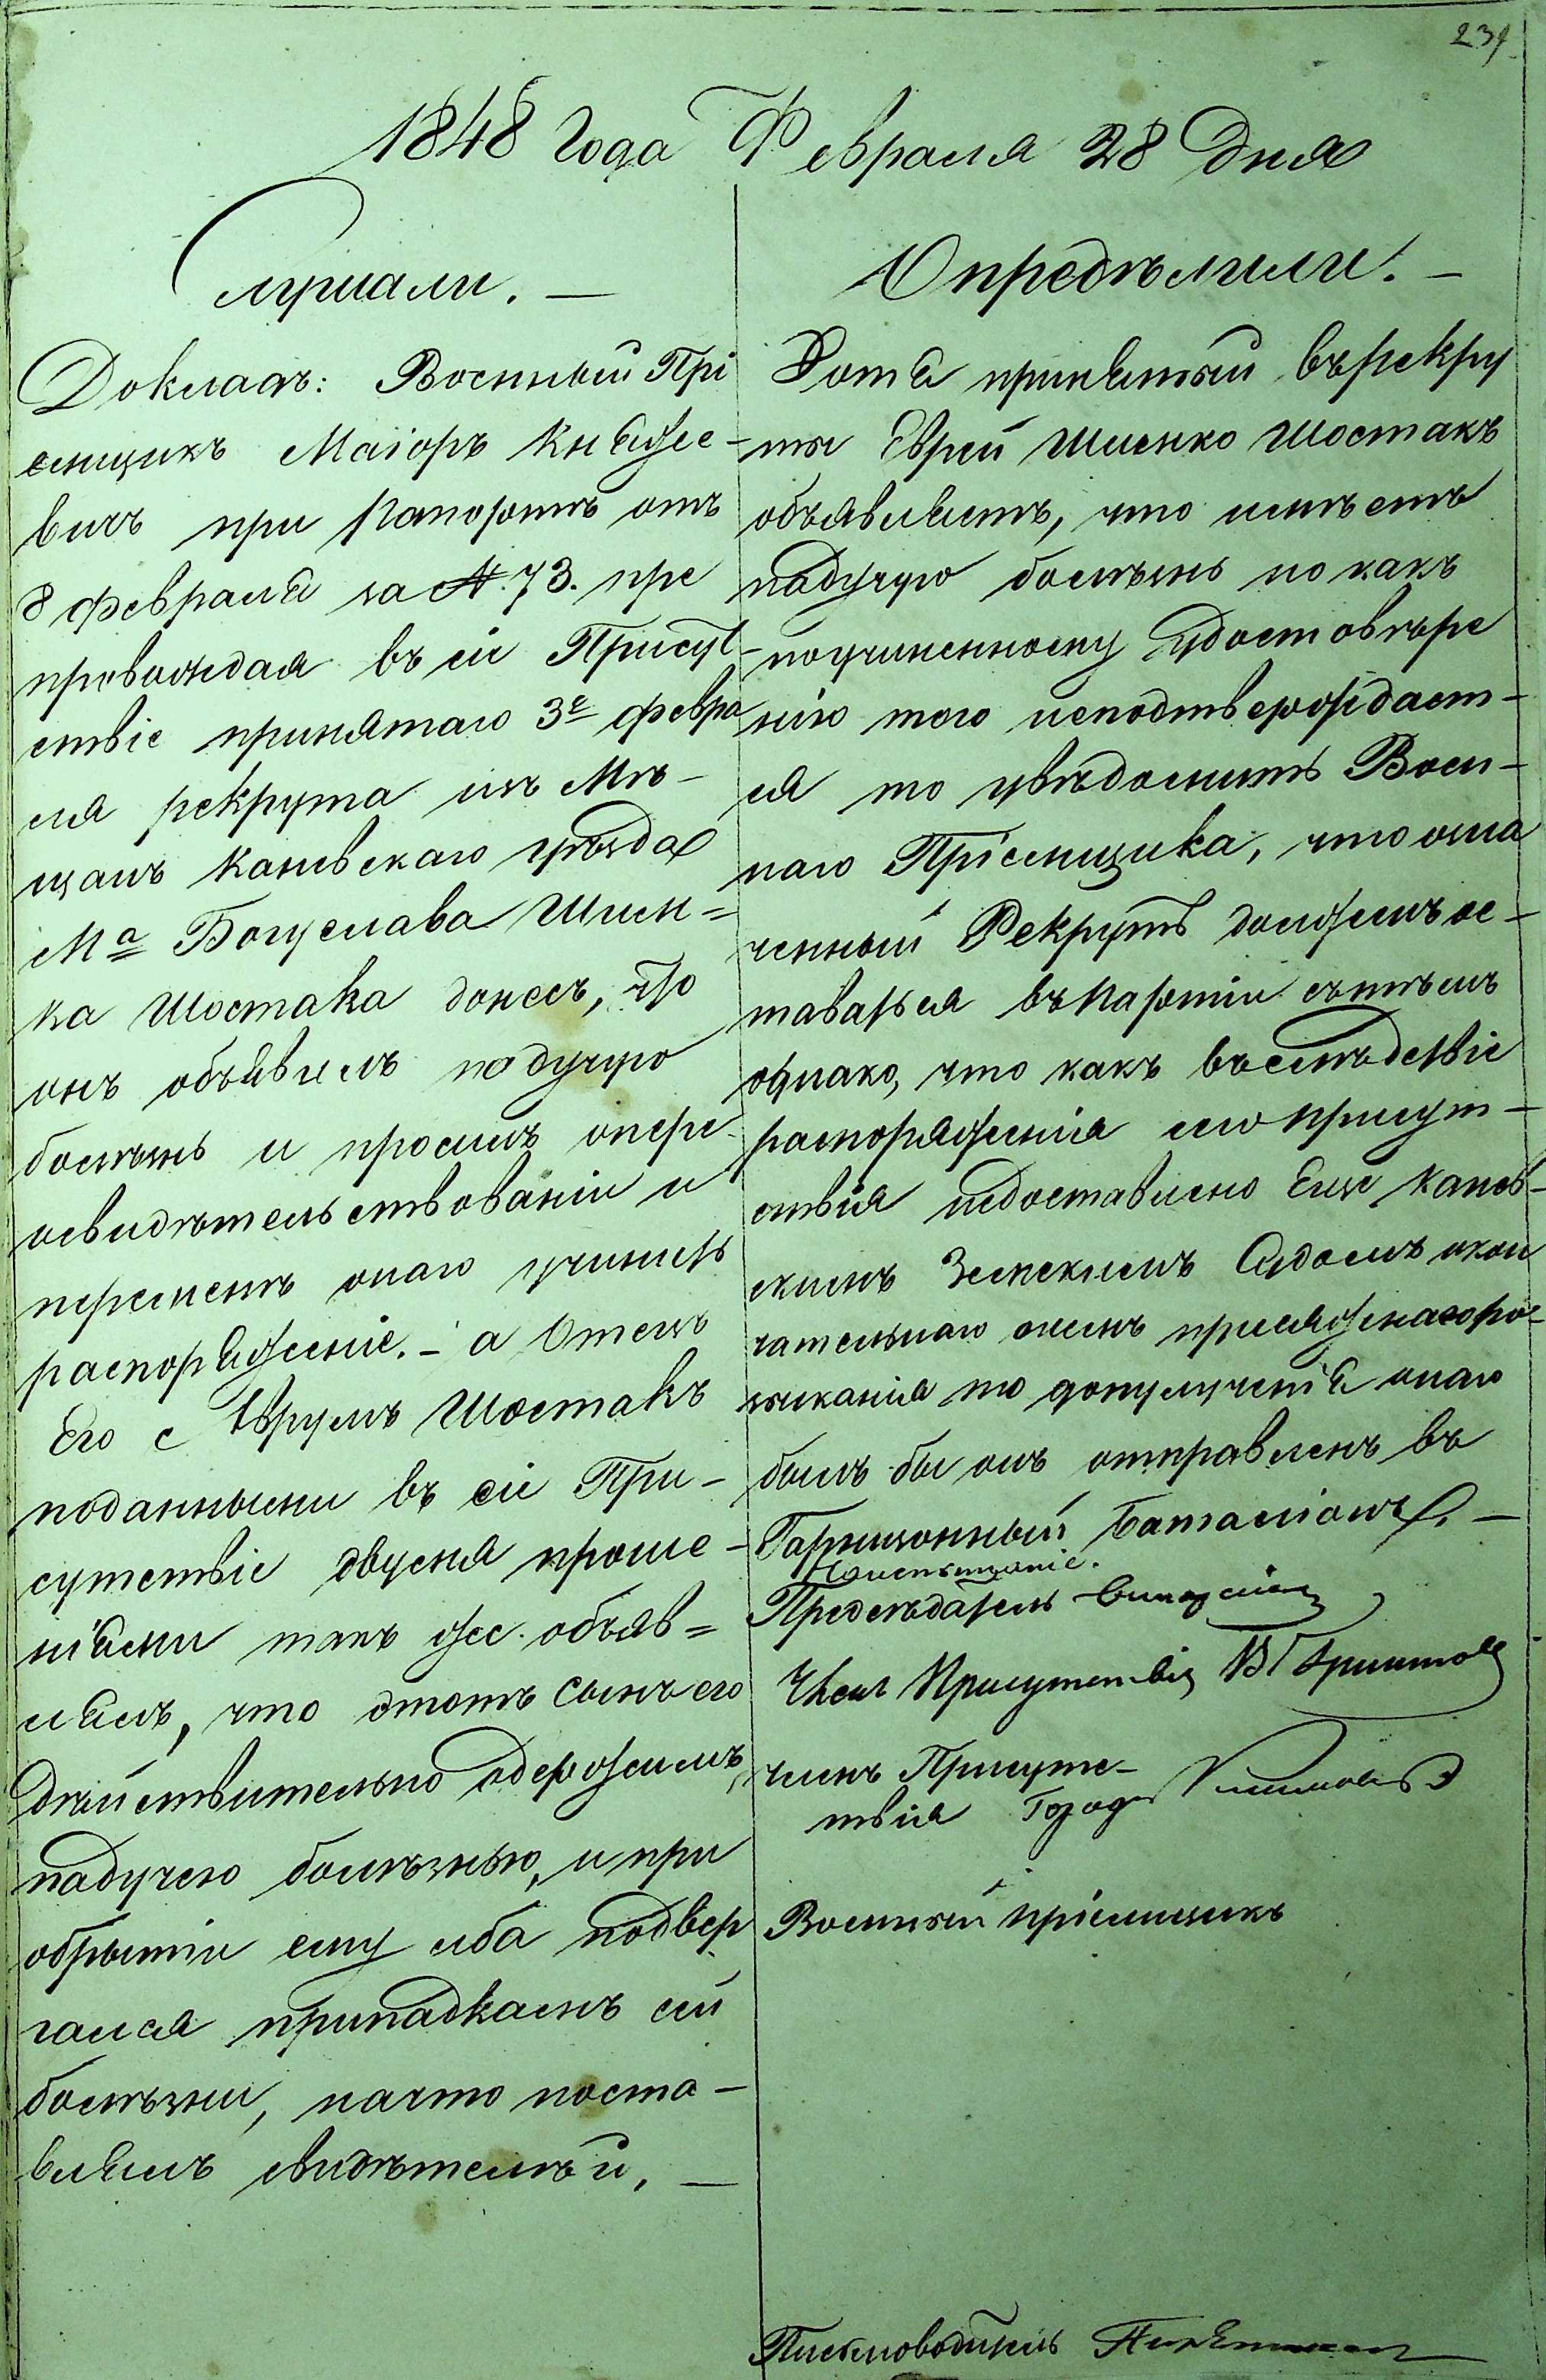 231
1848 Года Февраля 28 Дня
Слушали. —
Докладъ: Военный Прі
емщикъ Маіоръ Княже-
вичъ при рапортѣ отъ
8 февраля за № 73. пре
провождая въ сіе Присут-
ствіе принятаго 3е февра
ля рекрута изъ Мѣ-
щанъ Каневскаго уѣзда
Ма Богуслава Шлем=
ка Шостака донесъ, что
онъ объявилъ падучую
болѣзнь и проситъ опере
освидѣтельствованіи и
перемѣнѣ онаго учинить
распоряженіе. — а Отецъ
Его с Аврумъ Шостакъ
поданными въ сіе При-
сутствіе двумя проше-
ніями такъ же объяв=
лялъ, что этотъ сынъ его
дѣйствительно одержимъ
падучею болѣзнью, и при
обрытіи ему лба подвер
гался припадкамъ сей
болѣзни, начто поста-
влялъ свидѣтелѣй. —
Опредѣлили. —
Хотя принятый въ рекру
ты Еврей Шлемко Шостакъ
объявляетъ, что имѣетъ
падучую болѣзнь но какъ
поучиненному удостовѣре
нію того неподтверждает-
ся то увѣдомить Воен-
наго Пріемщика, что озна
ченный Рекрутъ долженъ ос-
таваться въ партіи сътѣмъ
однако, что какъ въслѣдствіе
распоряженія сего присут-
ствія недоставлено Еще Канев-
скимъ Земскимъ Судомъ окон
чательнаго онемъ присяжнагоро-
зысканія то дополученія онаго
былъ бы онъ отправленъ въ
Гарнизонный Баталіонъ. —
Предсѣдатель
Членъ Присутствія
членъ Присутс-
твія Город
Военный пріемщикъ
Письмоводитель